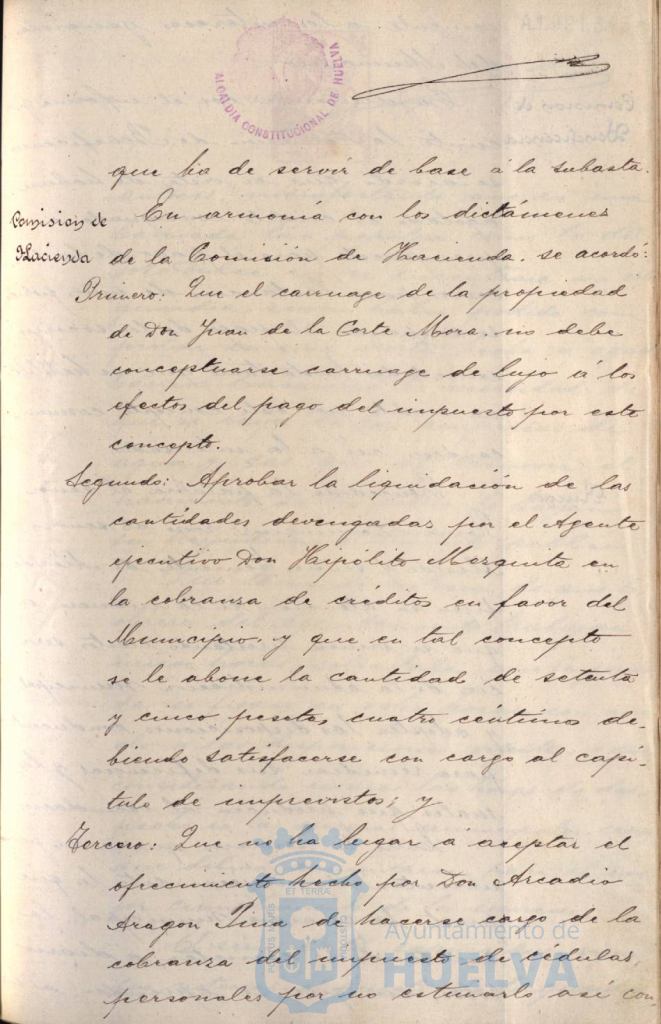 ALCALDIA CONSTITUCIONAL DE HUELVA
que ha de servir de base á la subasta.
Comisión de
Hacienda
En armonía con los dictámenes
de la Comisión de Hacienda, se acordó:
Primero: Que el carruage de la propiedad
de Don Juan de la Corte Mora, no debe
conceptuarse carruage de lujo á los
efectos del pago del impuesto por este
concepto.
Segundo: Aprobar la liquidación de las
cantidades devengadas por el Agente
ejecutivo Don Hipólito Mezquita en
la cobranza de créditos en favor del
Municipio, y que en tal concepto
se le abone la cantidad de setenta
y cinco pesetas, cuatro céntimos de-
biendo satisfacerse con cargo al capí-
tulo de imprevistos; y
Tercero: Que no ha lugar á aceptar el
ofrecimiento hecho por Don Arcadio
Aragon de hacerse cargo de la
cobranza del impuesto de cédulas,
personales por no estimarlo así con-
ET TERRÆ
PORTUS MARIS
CUSTODIA
Ayuntamiento de
HUELVA